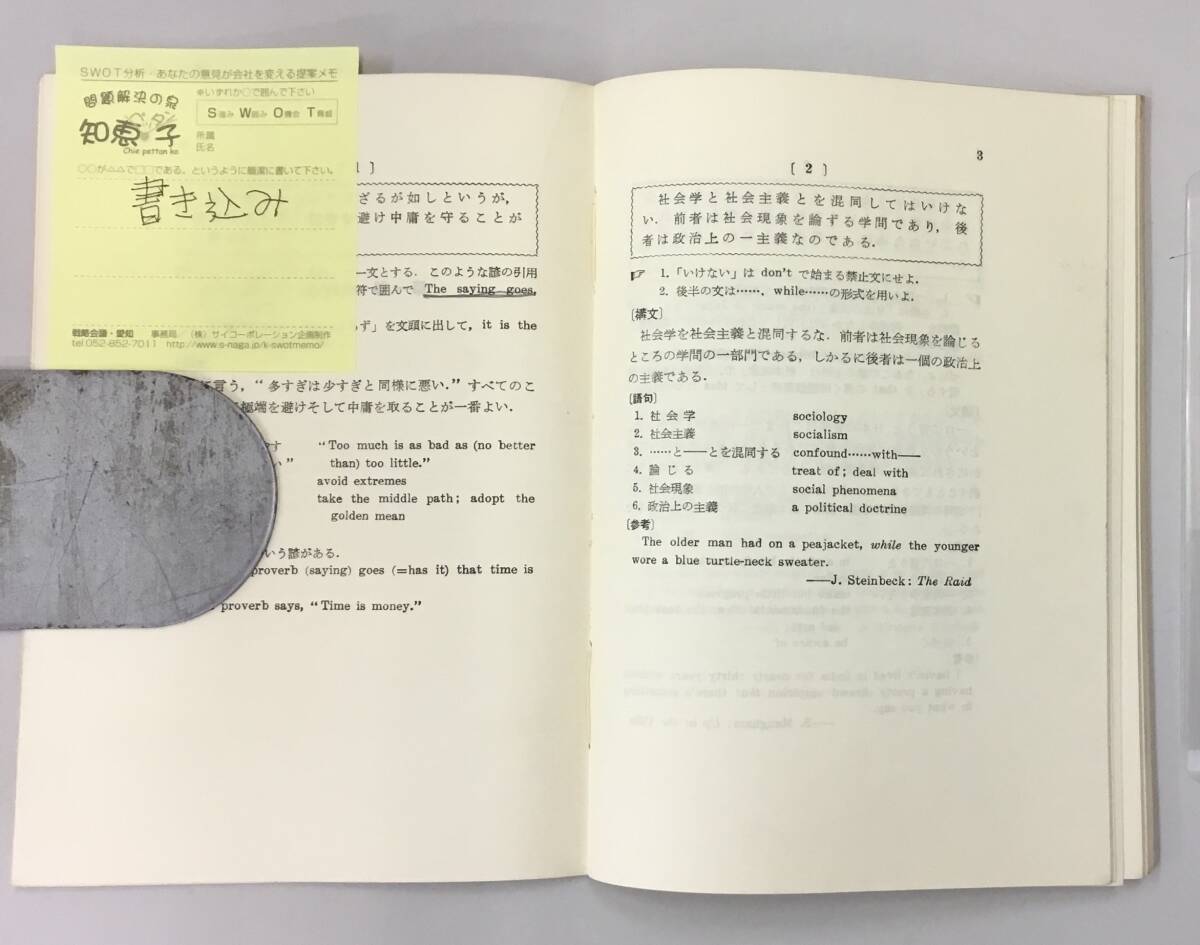 SWOT分析・あなたの意見が会社を変える提案メモ
問題解決の泉
※いずれか○で囲んで下さい
S強み W弱み O機会 T脅威
知恵ペッタン子
Chie pettan ko
所属
氏名
○○が△△で□□である。というように簡潔に書いて下さい。
書き込み
戦略会議・愛知 事務局／(株)サイコーポレーション企画制作
tel 052-852-7011 http://www.s-naga.jp/k-swotmemo/
1 ]
ざるが如しというが，
避け中庸を守ることが
一文とする．このような諺の引用
符で囲んで The saying goes,
らず」を文頭に出して，it is the
言う，“多すぎは少すぎと同様に悪い．”すべてのこ
極端を避けそして中庸を取ることが一番よい．
やす “Too much is as bad as (no better
い” than) too little.”
avoid extremes
take the middle path; adopt the
golden mean
いう諺がある．
proverb (saying) goes (=has it) that time is
proverb says, “Time is money.”
3
[ 2 ]
社会学と社会主義とを混同してはいけな
い．前者は社会現象を論ずる学問であり，後
者は政治上の一主義なのである．
☞ 1.「いけない」は don't で始まる禁止文にせよ．
2. 後半の文は……，while……の形式を用いよ．
〔構文〕
社会学を社会主義と混同するな．前者は社会現象を論じる
ところの学問の一部門である，しかるに後者は一個の政治上
の主義である．
〔語句〕
1. 社会学 sociology
2. 社会主義 socialism
3. ……と――とを混同する confound……with――
4. 論じる treat of; deal with
5. 社会現象 social phenomena
6. 政治上の主義 a political doctrine
〔参考〕
The older man had on a peajacket, while the younger
wore a blue turtle-neck sweater.
――J. Steinbeck: The Raid